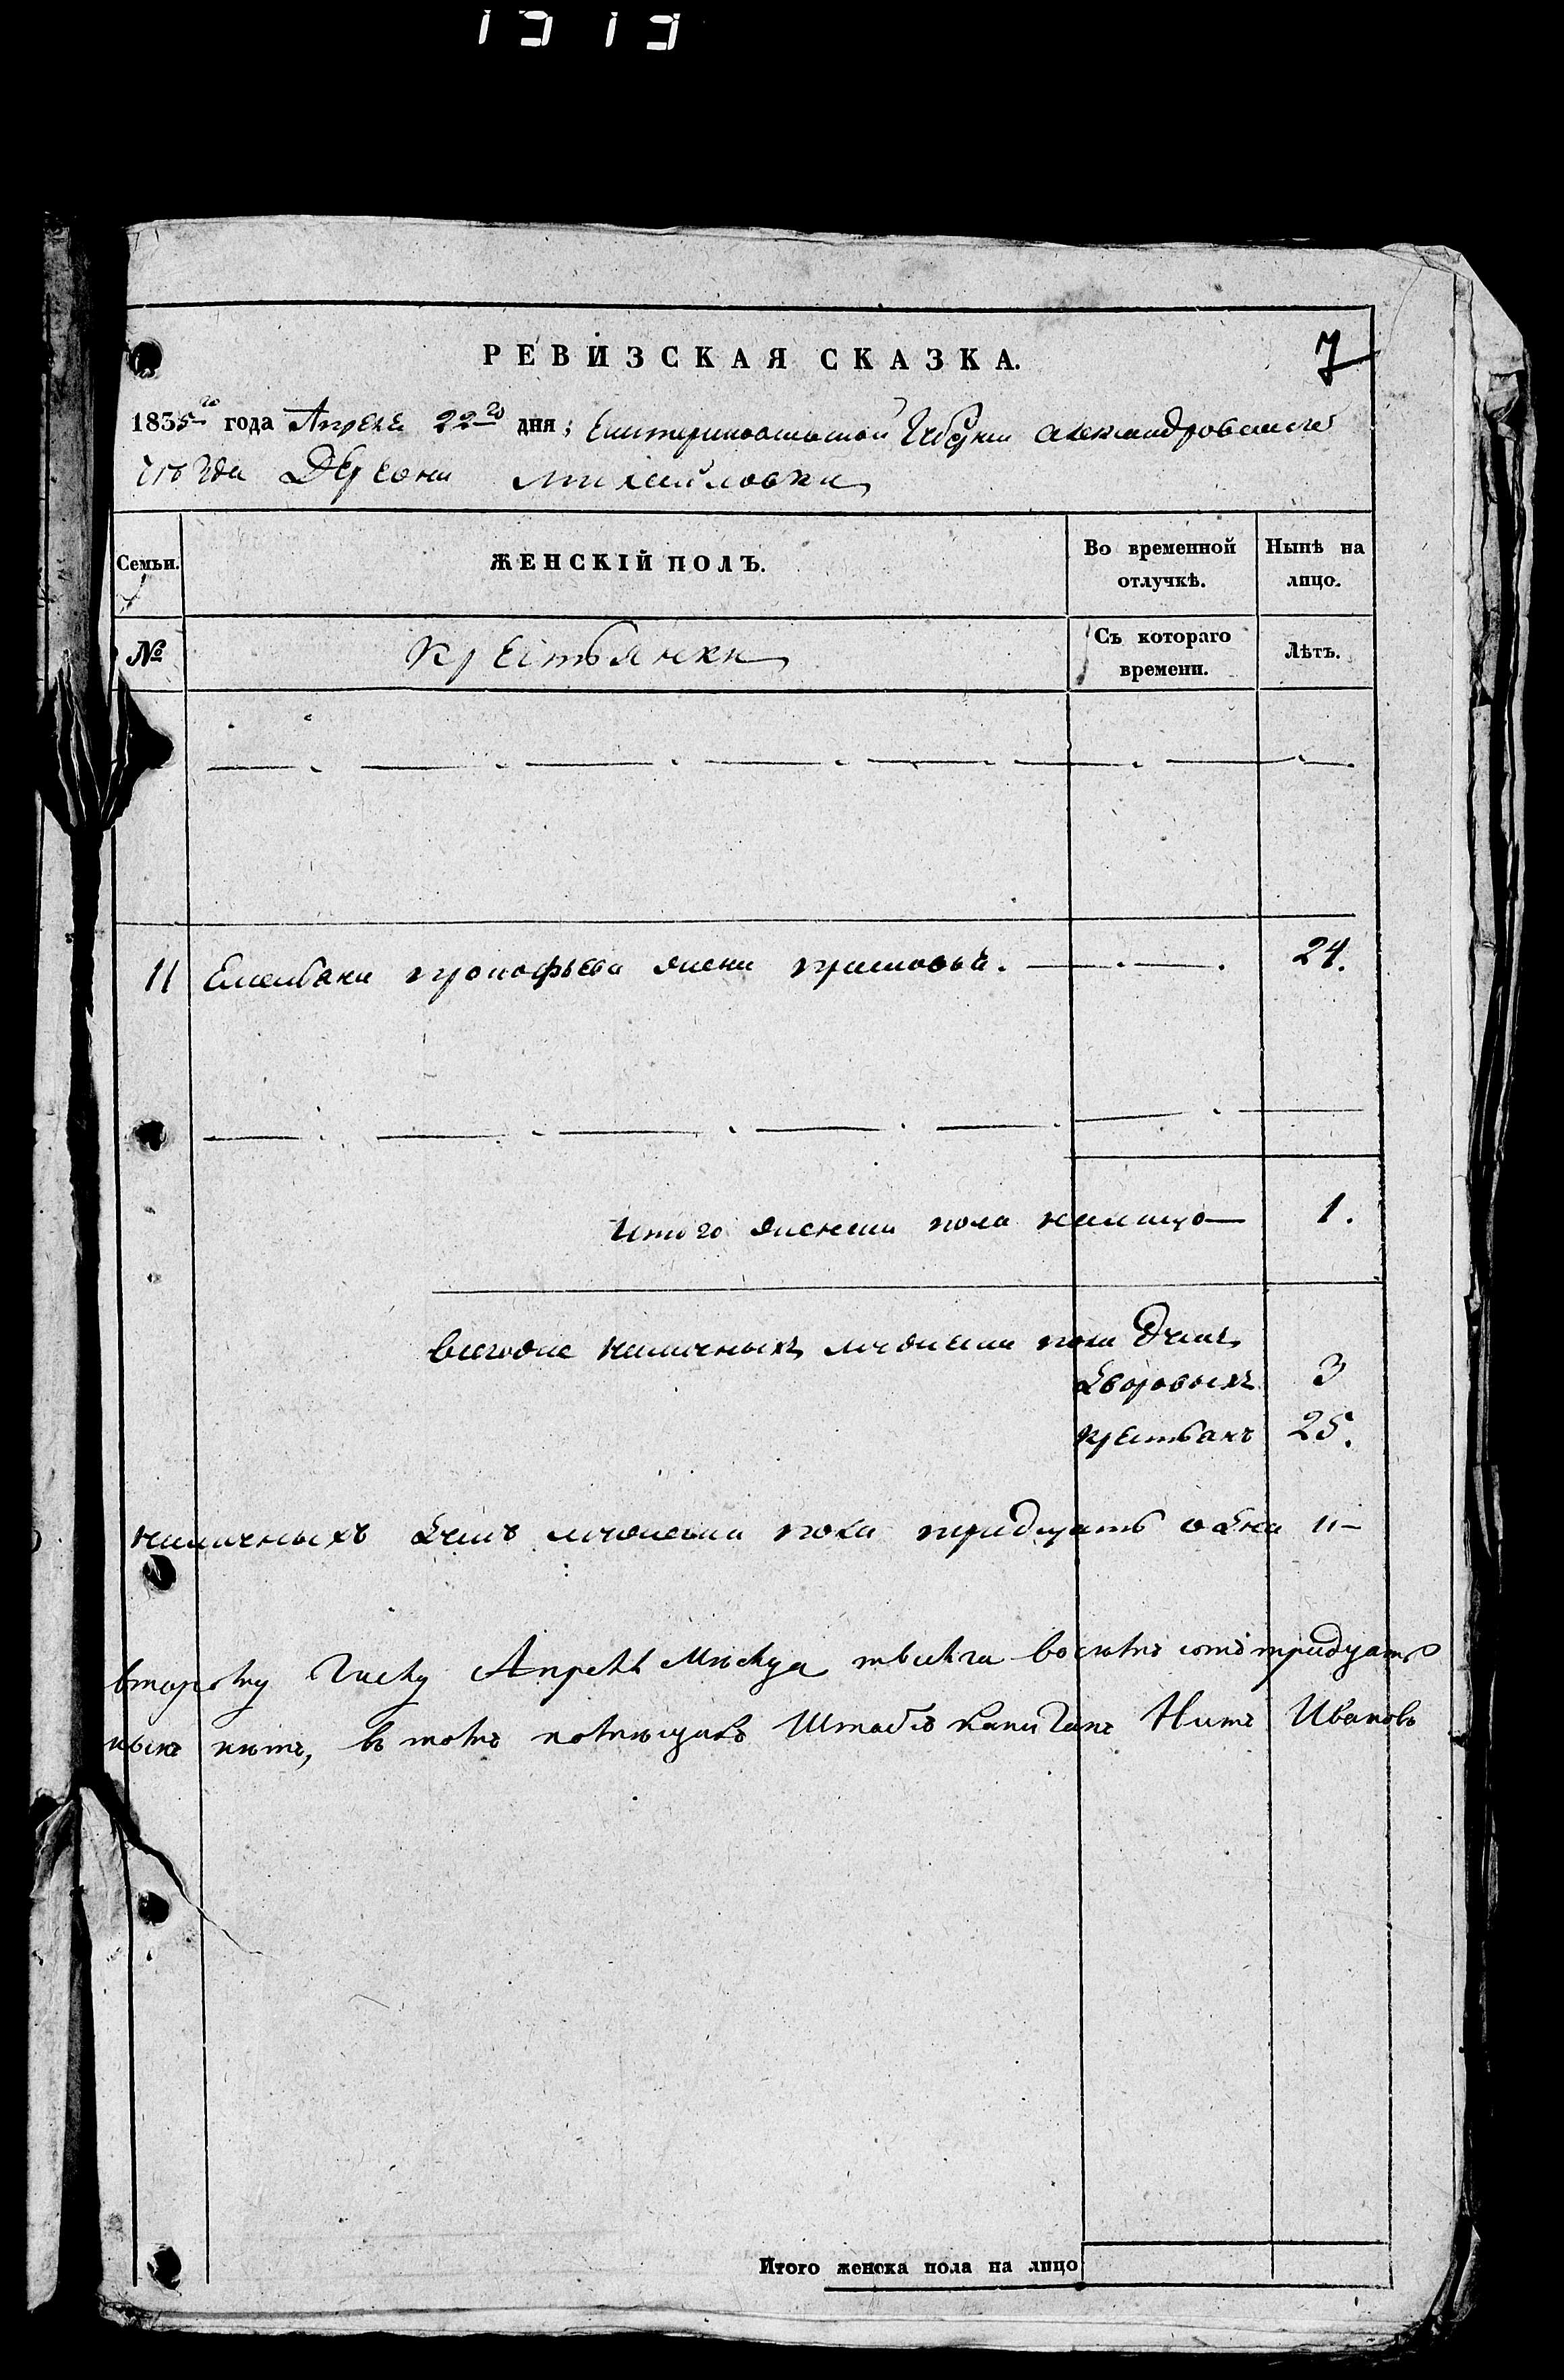 РЕВИЗСКАЯ СКАЗКА.
7
1835го года Апреля 22го дня; Екатеринославской Губернии Александровскаго
уѣзда Деревни Михайловки
Семьи.
ЖЕНСКІЙ ПОЛЪ.
Во временной отлучкѣ.
Нынѣ на лицо.
№
Крестьянки
Съ котораго времени.
Лѣтъ.
11 Емельяна Прокофьева жена 24.
Итого женска пола налицо 1.
Всего наличныхъ женска пола душъ
Дворовыхъ 3
Крестьянъ 25.
наличныхъ душъ пола тридцать одна
второму числу Апреля Мѣсяца тысяча восемь сотъ тридцать
нѣтъ, въ томъ помѣщикъ Штабсъ капитанъ Иванов
Итого женска пола на лицо